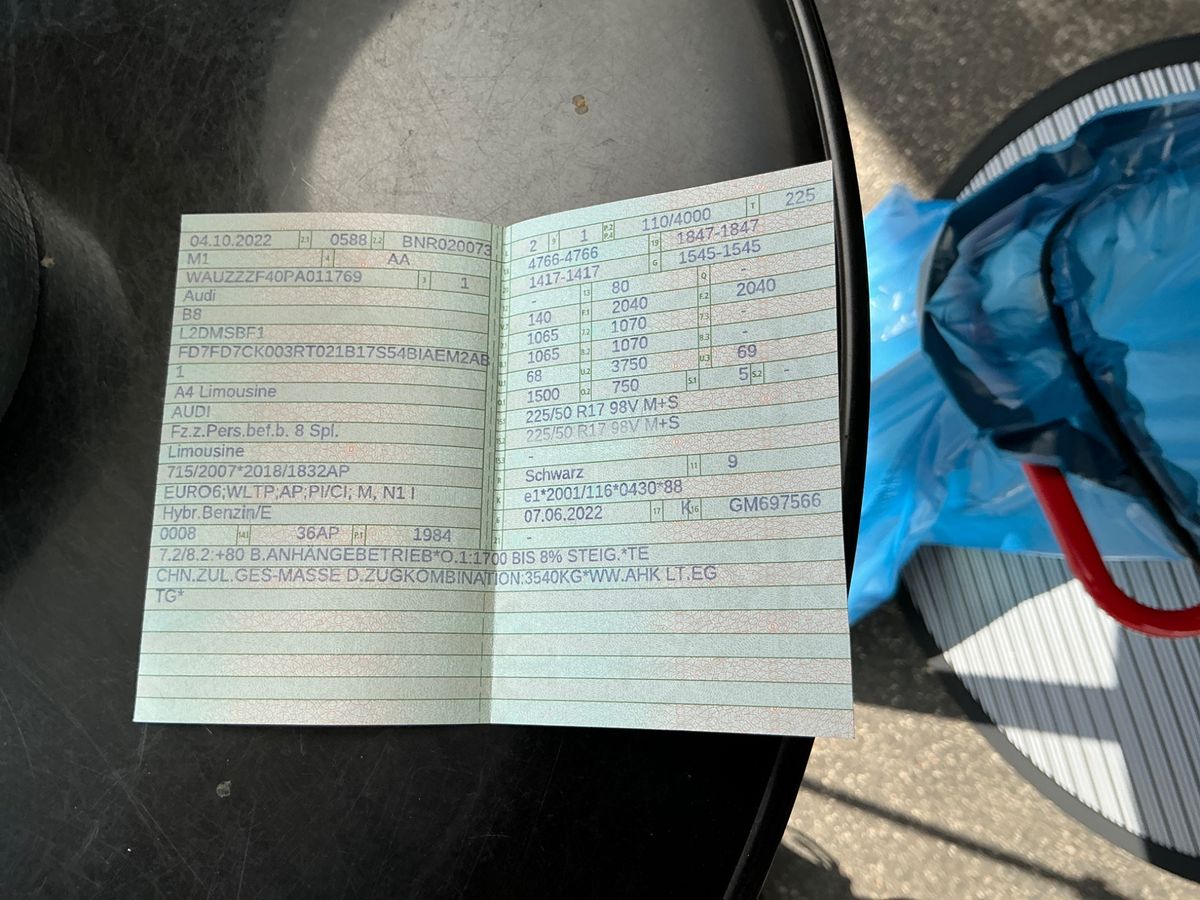 04.10.2022 2.1 0588 2.2 BNR020073
M1 4 AA
WAUZZZF40PA011769 3 1
Audi
B8
L2DMSBF1
FD7FD7CK003RT021B17S54BIAEM2AB
1
A4 Limousine
AUDI
Fz.z.Pers.bef.b. 8 Spl.
Limousine
715/2007*2018/1832AP
EURO6;WLTP;AP;PI/CI; M, N1 I
Hybr.Benzin/E
0008 14.1 36AP P.1 1984
2 9 1 P.2 P.4 110/4000 T 225
4766-4766 19 1847-1847
1417-1417 G 1545-1545
- 13 80 Q -
140 F.1 2040 F.2 2040
1065 7.2 1070 7.3 -
1065 8.2 1070 8.3 -
68 U.2 3750 U.3 69
1500 O.2 750 S.1 5 S.2 -
225/50 R17 98V M+S
225/50 R17 98V M+S
-
Schwarz 11 9
e1*2001/116*0430*88
07.06.2022 17 K 16 GM697566
-
7.2/8.2:+80 B.ANHÄNGEBETRIEB*O.1:1700 BIS 8% STEIG.*TE
CHN.ZUL.GES-MASSE D.ZUGKOMBINATION:3540KG*WW.AHK LT.EG
TG*